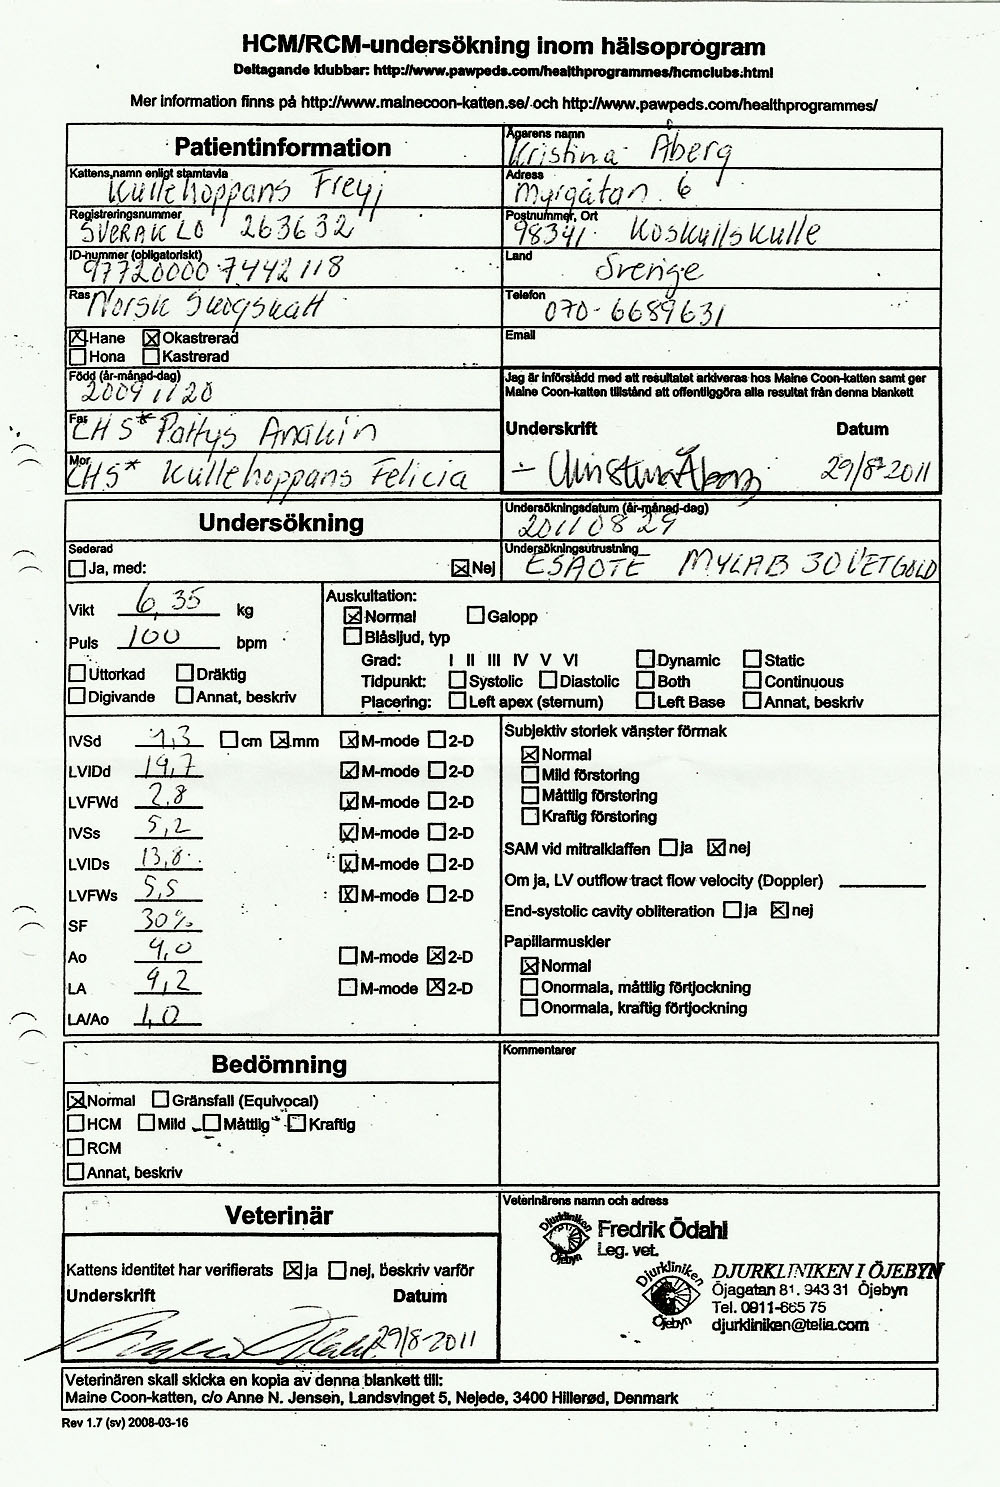 HCM/RCM-undersökning inom hälsoprogram
Deltagande klubbar: http://www.pawpeds.com/healthprogrammes/hcmclubs.html
Mer information finns på http://www.mainecoon-katten.se/ och http://www.pawpeds.com/healthprogrammes/
Patientinformation
Kattens namn enligt stamtavla
Kullehoppans Freyj
Registreringsnummer
SVERAK LO 263632
ID-nummer (obligatoriskt)
97720000 7442118
Ras Norsk Skogskatt
Hane Okastrerad
Hona Kastrerad
Född (år-månad-dag)
20091120
Far
CH S* Pottys Anakin
Mor
CH S* Kullehoppans Felicia
Ägarens namn
Kristina Åberg
Adress
Myrgatan 6
Postnummer, Ort
98341 Koskullskulle
Land
Sverige
Telefon
070-6689631
Email
Jag är införstådd med att resultatet arkiveras hos Maine Coon-katten samt ger
Maine Coon-katten tillstånd att offentliggöra alla resultat från denna blankett
Underskrift Datum
29/8-2011
Undersökning
Sederad
Ja, med: Nej
Undersökningsdatum (år-månad-dag)
20110829
Undersökningsutrustning
ESAOTE MYLAB 30 VET GOLD
Vikt 6,35 kg
Puls 100 bpm
Uttorkad Dräktig
Digivande Annat, beskriv
Auskultation:
Normal Galopp
Blåsljud, typ
Grad: I II III IV V VI Dynamic Static
Tidpunkt: Systolic Diastolic Both Continuous
Placering: Left apex (sternum) Left Base Annat, beskriv
IVSd cm mm M-mode 2-D
LVIDd 19,7 M-mode 2-D
LVFWd 2,8 M-mode 2-D
IVSs 5,2 M-mode 2-D
LVIDs 13,8 M-mode 2-D
LVFWs 5,5 M-mode 2-D
SF 30%
Ao 9,0 M-mode 2-D
LA 9,2 M-mode 2-D
LA/Ao 1,0
Subjektiv storlek vänster förmak
Normal
Mild förstoring
Måttlig förstoring
Kraftig förstoring
SAM vid mitralklaffen ja nej
Om ja, LV outflow tract flow velocity (Doppler)
End-systolic cavity obliteration ja nej
Papillarmuskler
Normal
Onormala, måttlig förtjockning
Onormala, kraftig förtjockning
Bedömning
Normal Gränsfall (Equivocal)
HCM Mild Måttlig Kraftig
RCM
Annat, beskriv
Kommentarer
Veterinär
Kattens identitet har verifierats ja nej, beskriv varför
Underskrift Datum
29/8-2011
Veterinärens namn och adress
Djurkliniken
Öjebyn
Fredrik Ödahl
Leg. vet.
Djurkliniken
Öjebyn
DJURKLINIKEN I ÖJEBYN
Öjagatan 81, 943 31 Öjebyn
Tel. 0911-665 75
djurkliniken@telia.com
Veterinären skall skicka en kopia av denna blankett till:
Maine Coon-katten, c/o Anne N. Jensen, Landsvinget 5, Nejede, 3400 Hillerød, Denmark
Rev 1.7 (sv) 2008-03-16